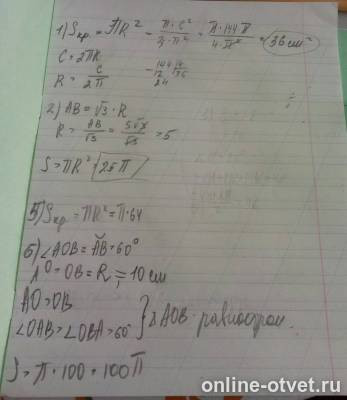 1) Sкр. = πR² = π·C²/4·π² = π·144π/4·π² = 36 см²
C = 2πR
R = C/2π
2) AB = √3·R
R = AB/√3 = 5√3/√3 = 5
S = πR² = 25π
5) Sкр = πR² = π·64
6) ∠AOB = AB = 60°
AO = OB = R = 10 см
AO = OB
∠OAB = ∠OBA = 60° } Δ AOB - равностор.
S = π·100 = 100π
online-otvet.ru